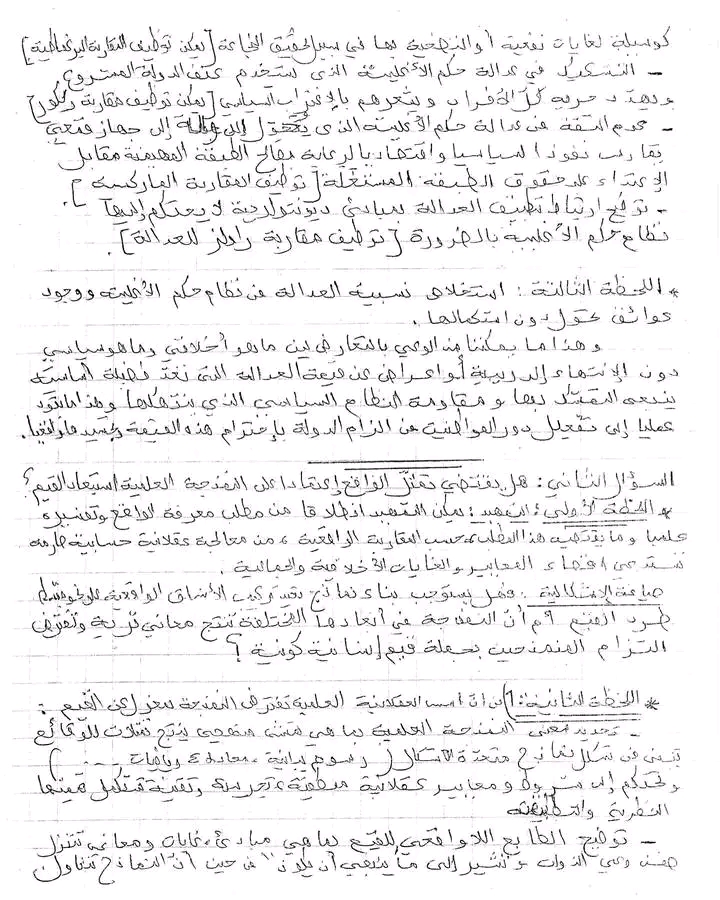 كوسيلة لغايات نفعية أو التضحية بها في سبيل تحقيق النجاعة [يمكن توظيف المقاربة البرغماتية]
- التشكيك في عدالة حكم الأغلبية الذي يستخدم عنف الدولة المشروع
ويهدد حرية كل الأفراد ويشعرهم بالإغتراب السياسي [يمكن توظيف مقاربة ريكور]
- عدم الثقة في عدالة حكم الأغلبية الذي يتحول إلى إلى جهاز قمعي
يمارس نفوذا سياسيا واقتصاديا لرعاية مصالح الطبقة المهيمنة مقابل
الإعتداء على حقوق الطبقة المستغلة [توظيف المقاربة الماركسية].
- توضيح ارتباط تطبيق العدالة بمبادئ ديونتولوجية لا يحتكم إليها
نظام حكم الأغلبية بالضرورة [توظيف مقاربة راولز للعدالة].
* اللحظة الثالثة: استخلاص نسبية العدالة في نظام حكم الأغلبية ووجود
عوائق تحول دون استكمالها.
وهذا ما يمكننا من الوعي بالتعارض بين ما هو أخلاقي وما هو سياسي
دون الإنتهاء إلى ريبية أو إعراض عن قيمة العدالة التي تعد فضيلة أساسية
ينبغي التمسك بها ومقاومة النظام السياسي الذي ينتهكها وهذا ما يقود
عمليا إلى تفعيل دور المواطنين في الزام الدولة بإحترام هذه القيمة وتجسيدها واقعيا.
السؤال الثاني: هل يقتضي تمثل الواقع إعتمادا على النمذجة العلمية استبعاد القيم؟
* اللحظة الأولى: التمهيد: يمكن التمهيد انطلاقا من مطلب معرفة الواقع وتفسيره
علميا وما يقتضيه هذا المطلب، حسب المقاربة الواقعية، من معالجة عقلانية حسابية صارمة
تستدعي إقصاء المعايير والغايات الأخلاقية والجمالية.
صياغة الإشكالية: فهل يستوجب بناء نماذج تعيد تركيب الأنساق الواقعية على نحو مبسط
طرد القيم؟ أم أن النمذجة في أبعادها المختلفة تنتج معاني ثرية وتفترض
التزام المنمذجين بجملة قيم إنسانية كونية؟
* اللحظة الثانية: 1) في أن أسس العقلانية العلمية تفترض النمذجة بمعزل عن القيم:
- تحديد معنى النمذجة العلمية بما هي تمشي منهجي ينتج تمثلات للوقائع
تبنى في شكل نماذج متعددة الأشكال (رسوم بيانية، معادلات رياضيات ....)
وتحتكم إلى شروط ومعايير عقلانية منطقية، تجريبية، وتقنية تشكل قيمتها
النظرية والتطبيقية
- توضيح الطابع اللاواقعي للقيم بما هي مبادئ، غايات ومعاني تتنزل
ضمن وعي الذوات وتشير إلى "ما ينبغي أن يكون" في حين أن النماذج تتناول